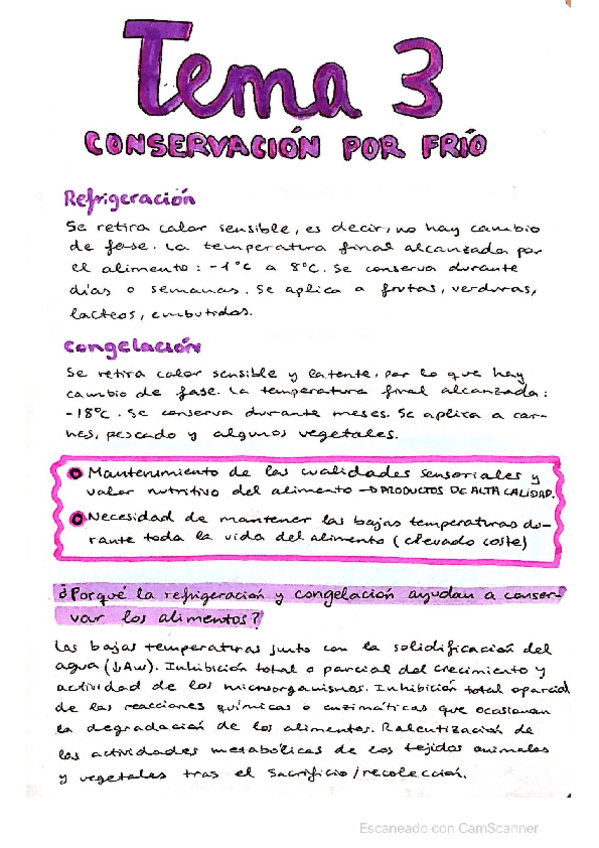 Tema 3
CONSERVACIÓN POR FRÍO
Refrigeración
Se retira calor sensible, es decir, no hay cambio
de fase. La temperatura final alcanzada por
el alimento: -1°C a 8°C. Se conserva durante
días o semanas. Se aplica a frutas, verduras,
lacteos, embutidos.
Congelación
Se retira calor sensible y latente, por lo que hay
cambio de fase. La temperatura final alcanzada:
-18°C. Se conserva durante meses. Se aplica a car-
nes, pescado y algunos vegetales.
Mantenimiento de las cualidades sensoriales y
valor nutritivo del alimento → PRODUCTOS DE ALTA CALIDAD.
Necesidad de mantener las bajas temperaturas du-
rante toda la vida del alimento (elevado coste)
¿Porqué la refrigeración y congelación ayudan a conser-
var los alimentos?
Las bajas temperaturas junto con la solidificación del
agua (↓Aw). Inhibición total o parcial del crecimiento y
actividad de los microorganismos. Inhibición total o parcial
de las reacciones químicas o enzimáticas que ocasionan
la degradación de los alimentos. Ralentización de
las actividades metabólicas de los tejidos animales
y vegetales tras el sacrificio/recolección.
Escaneado con CamScanner